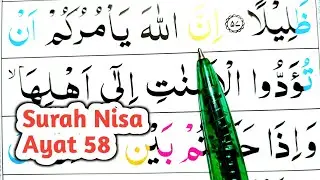 ظَلِيْلًا ﴿۵۷﴾ اِنَّ اللّٰهَ يَاْمُرُكُمْ اَنْ
تُؤَدُّوا الْاَمٰنٰتِ اِلٰٓى اَهْلِهَا ۙ
وَاِذَا بَيْنَ
Surah Nisa
Ayat 58